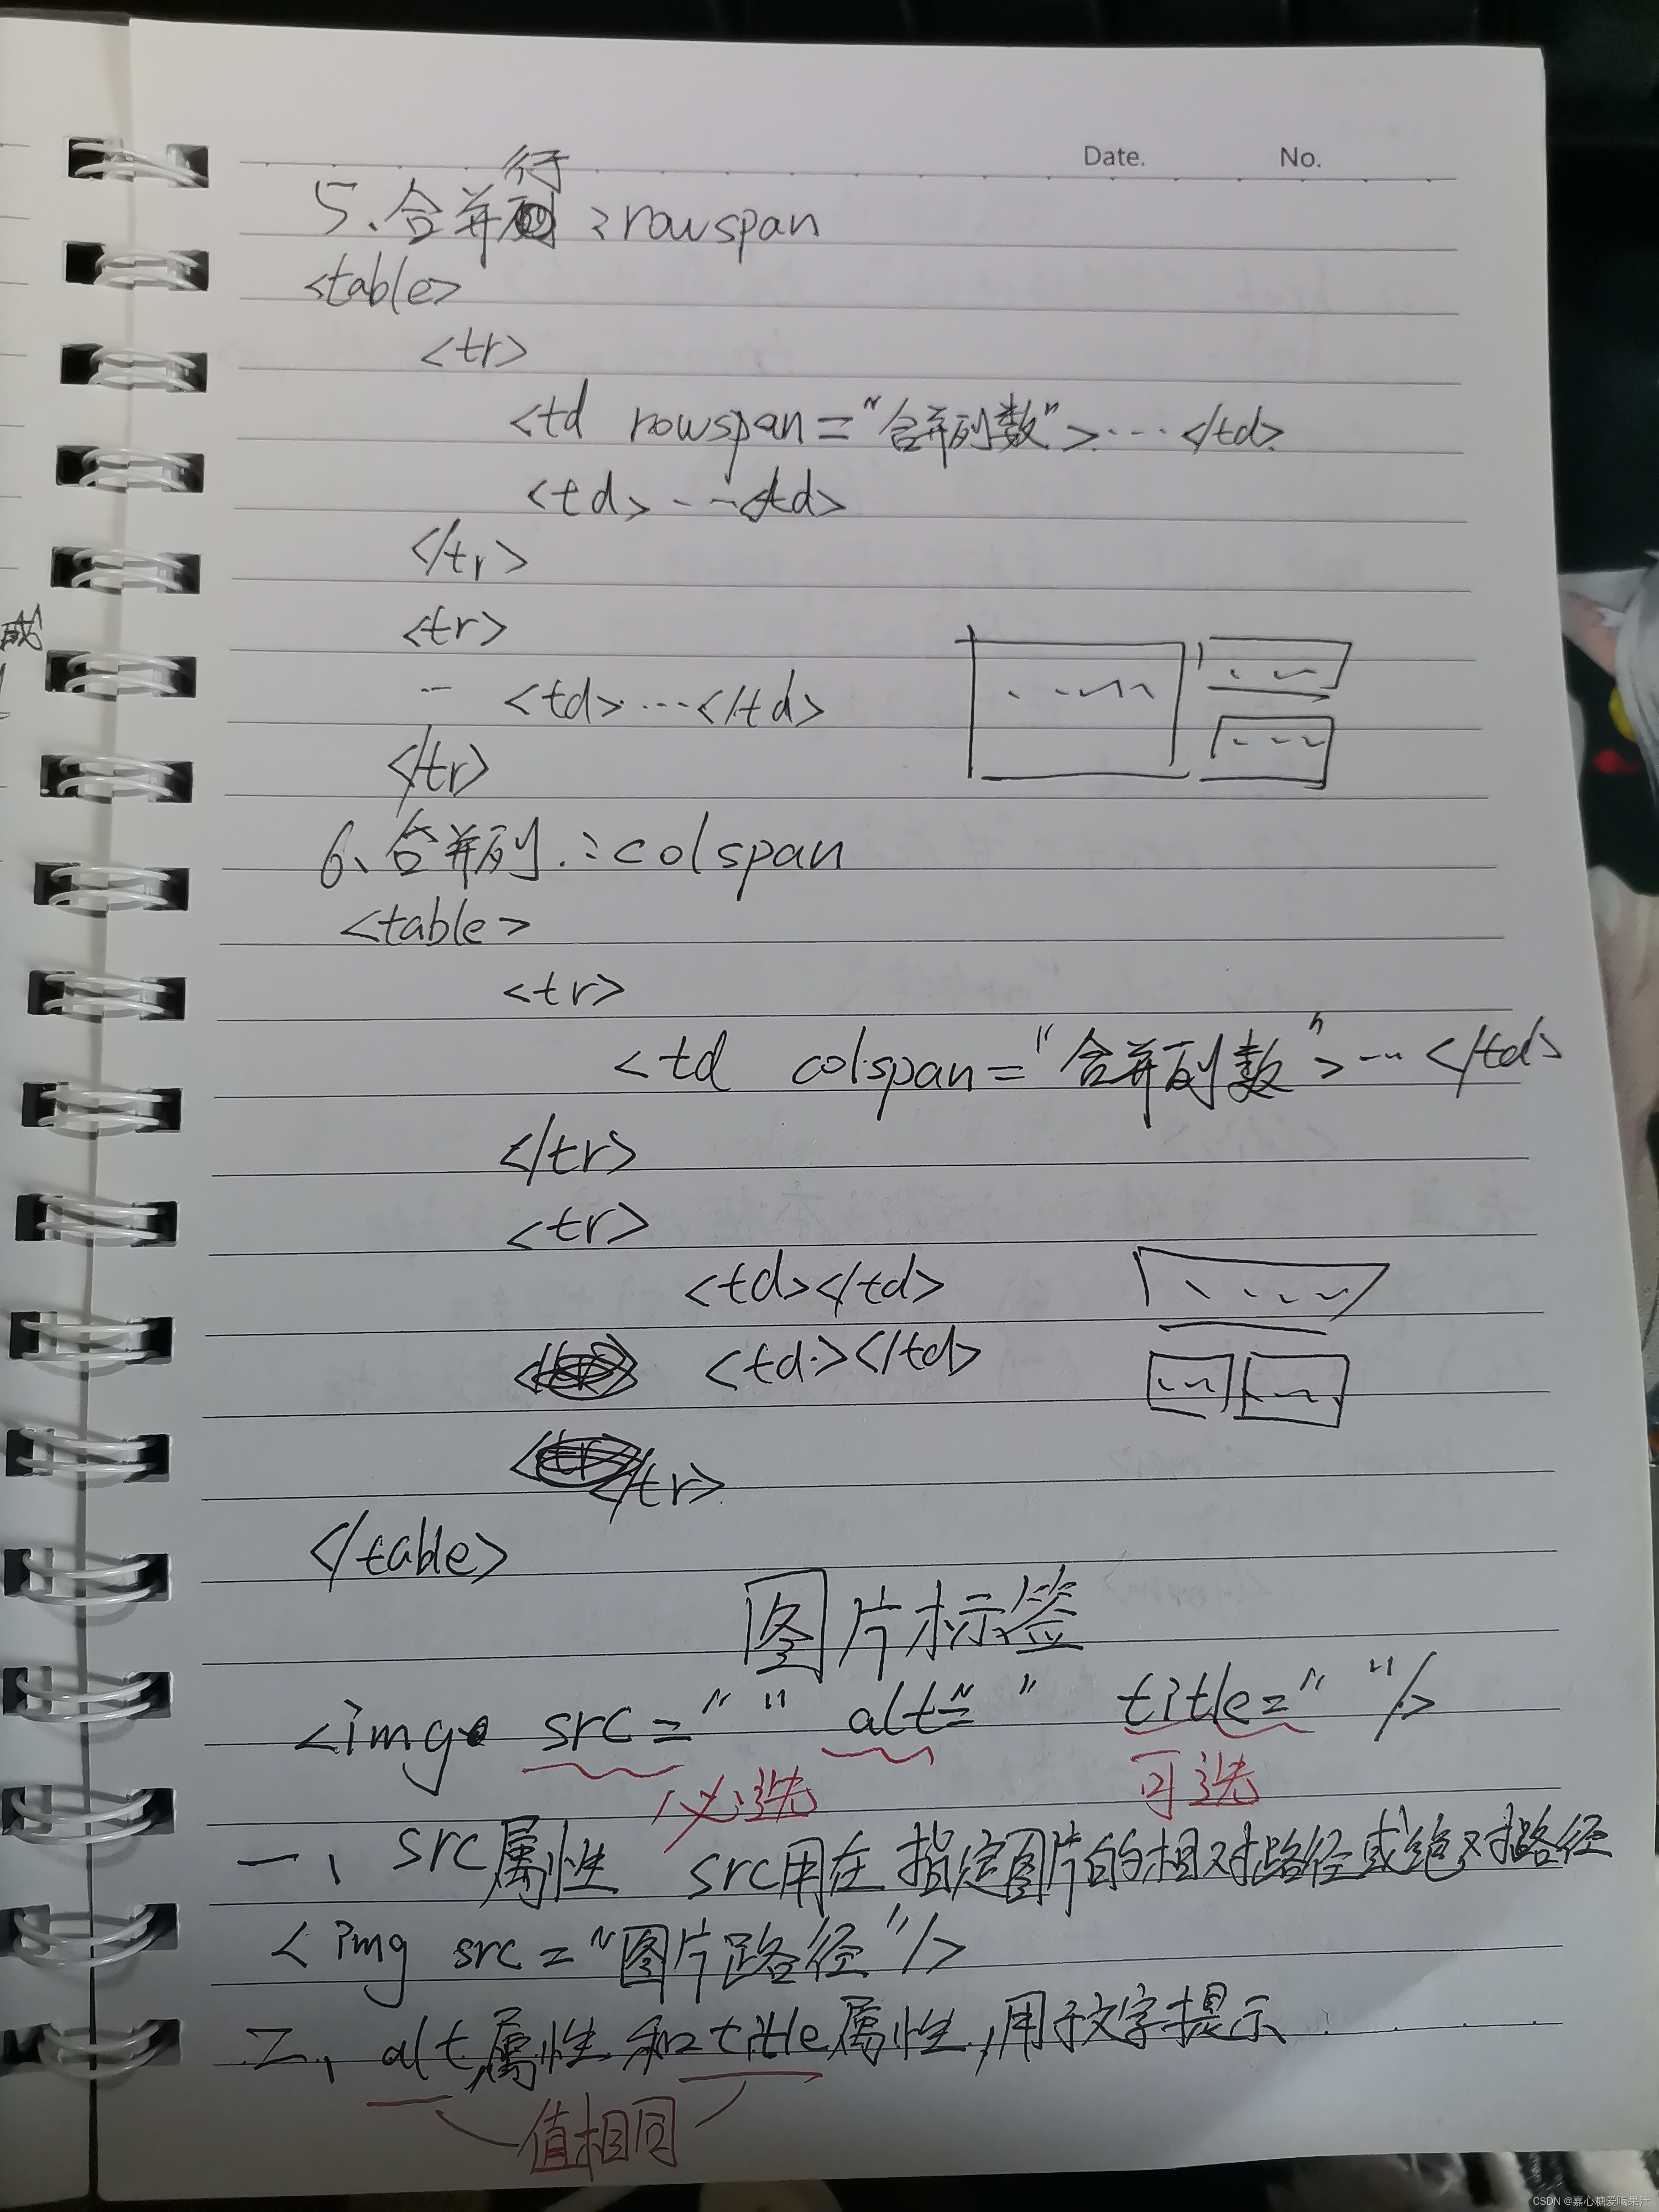 Date. No.
5、合并行:rowspan
<table>
<tr>
<td rowspan="合并列数">……</td>
<td>……</td>
</tr>
<tr>
<td>……</td>
</tr>
6、合并列:colspan
<table>
<tr>
<td colspan="合并列数">……</td>
</tr>
<tr>
<td></td>
<td></td>
</tr>
</table>
图片标签
<img src="" alt="" title=""/>
必选 可选
一、src属性 src用在指定图片的相对路径或绝对路径
<img src="图片路径"/>
二、alt属性和title属性,用于文字提示
值相同
CSDN @嘉心糖爱喝果汁